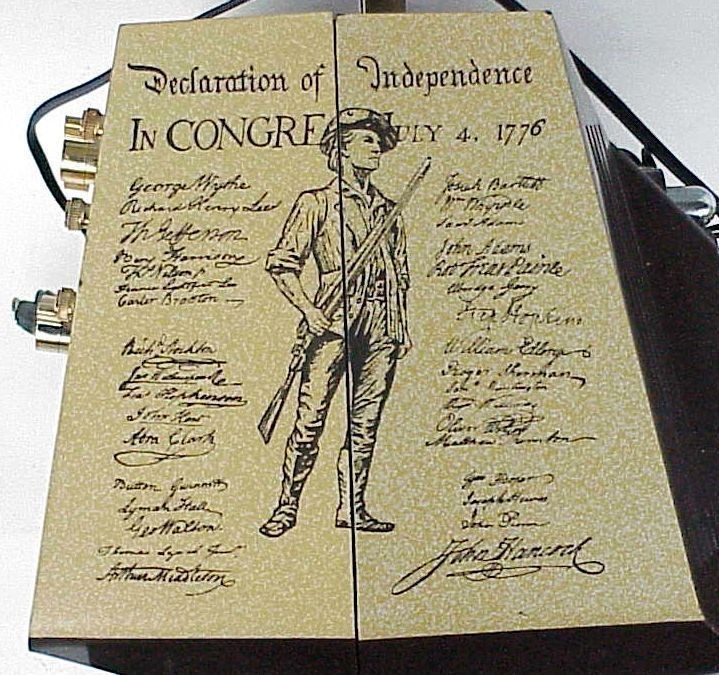 Declaration of Independence
IN CONGRE JULY 4. 1776
George Wythe
Richard Henry Lee
Th Jefferson
Benj Harrison
Th Nelson jr
Francis Lightfoot Lee
Carter Braxton
Richd Stockton
Jno Witherspoon
Fra Hopkinson
John Hart
Abra Clark
Button Gwinnett
Lyman Hall
Geo Walton
Thomas Lynch Junr
Arthur Middleton
Josiah Bartlett
Wm Whipple
Saml Adams
John Adams
Rob Treat Paine
Elbridge Gerry
Step Hopkins
William Ellery
Roger Sherman
Saml Huntington
Wm Williams
Oliver Wolcott
Matthew Thornton
Wm Hooper
Joseph Hewes
John Penn
John Hancock